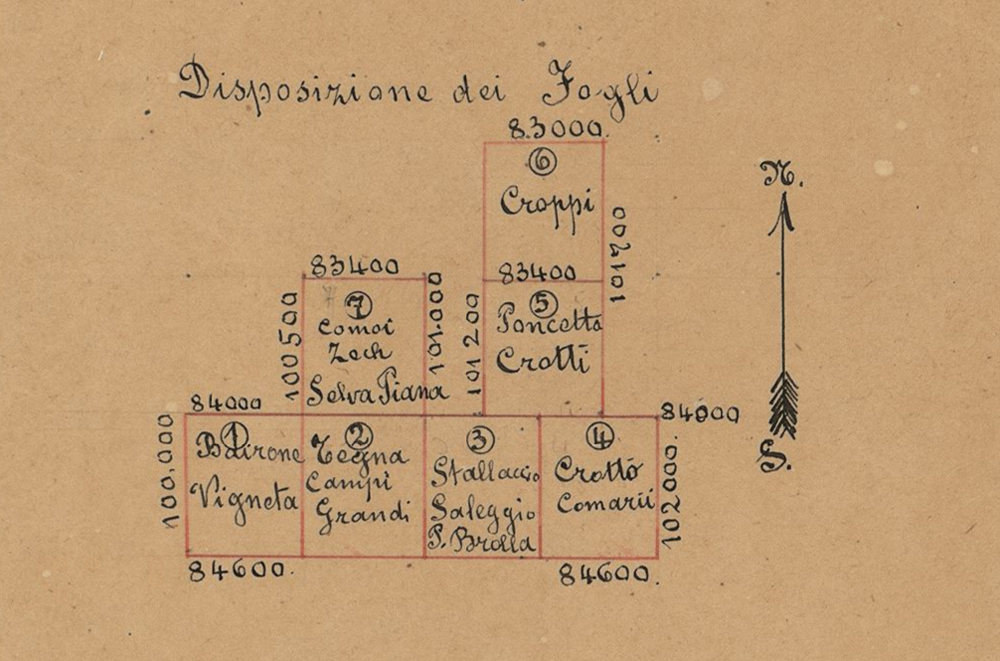 Disposizione dei Fogli
83000.
6
Croppi
101700
83400
5
Poncetta
Crotti
101200
83400
7
Comoi
Zech
Selva Piana
100500
101.000
84000
1
Bairone
Vigneta
100.000
2
Tegna
Campi
Grandi
3
Stallaccio
Saleggio
P. Brolla
4
Crotto
Comarii
84000
102000.
84600.
84600.
N.
S.